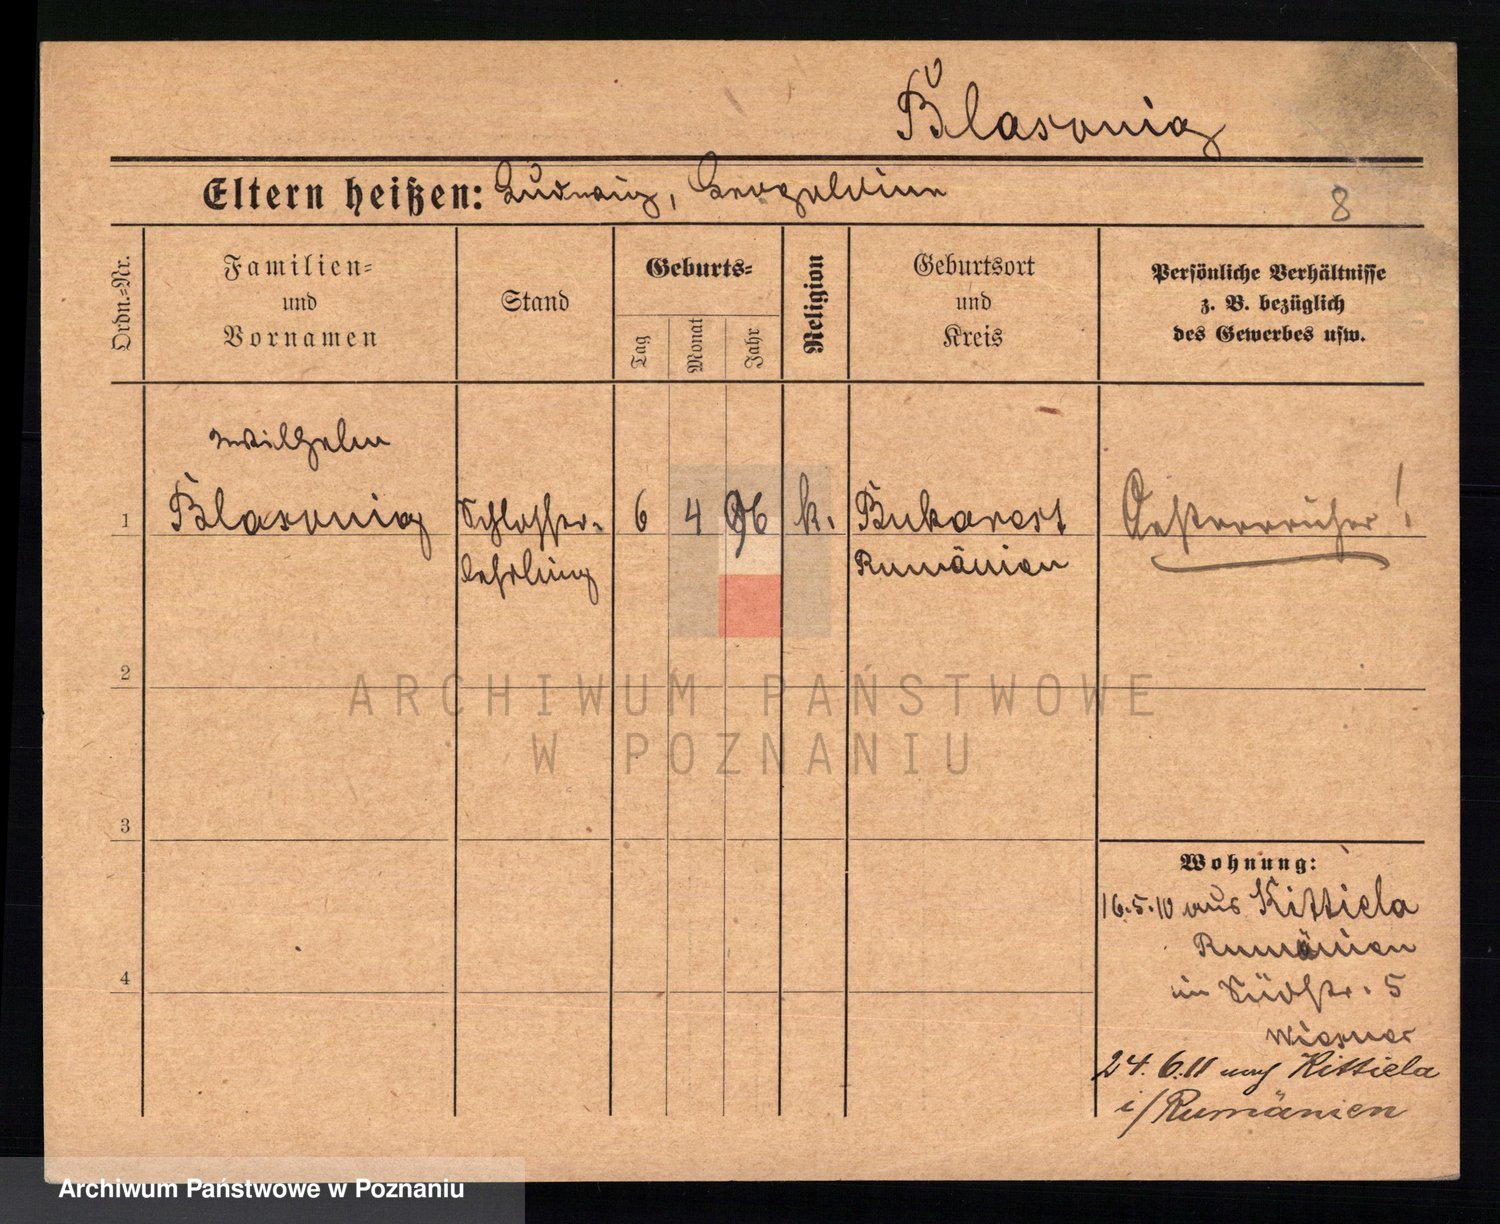 Blasonig
Eltern heißen: Ludwig,
8
Ordn.-Nr.
Familien-
und
Vornamen
Stand
Geburts-
Tag
Monat
Jahr
Religion
Geburtsort
und
Kreis
Persönliche Verhältnisse
z. B. bezüglich
des Gewerbes usw.
Wilhelm
1 Blasonig Schlosser- 6 4 96 k. Bukarest Oesterreicher!
lehrling Rumänien
2
ARCHIWUM PAŃSTWOWE
W POZNANIU
3
Wohnung:
16.5.10 aus Kittiela
Rumänien
in Südstr. 5
Wiesner
4
24.6.11 nach Kittiela
i/Rumänien
Archiwum Państwowe w Poznaniu